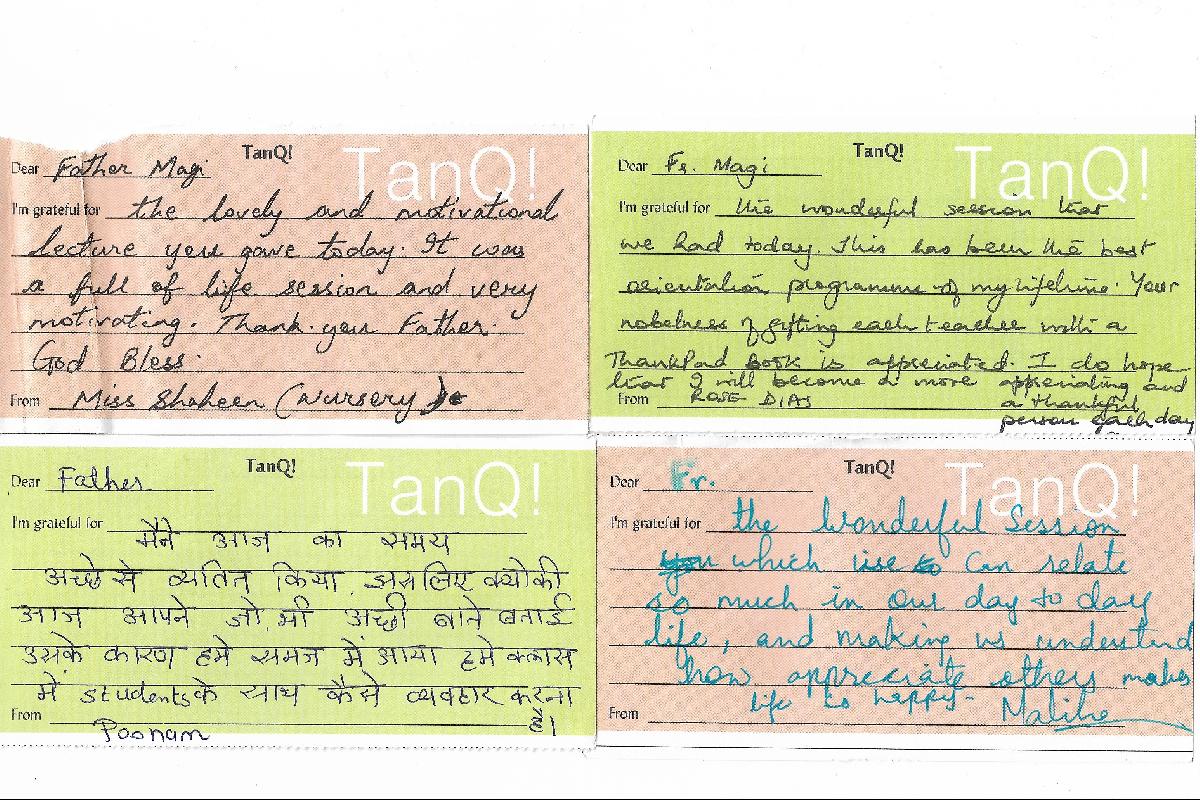 TanQ!
TanQ!
Dear Father Magi
I'm grateful for the lovely and motivational
lecture you gave today. It was
a full of life session and very
motivating. Thank you Father.
God Bless.
From Miss Shaheen (Nursery)
TanQ!
TanQ!
Dear Fr. Magi
I'm grateful for the wonderful session that
we had today. This has been the best
orientation programme of my lifetime. Your
nobelness of gifting each teacher with a
ThankPad BOOK is appreciated. I do hope
that I will become a more appreciating and
a thankful
person each day
From ROSE DIAS
TanQ!
TanQ!
Dear Father
I'm grateful for
मैने आज का समय
अच्छे से व्यतित किया, इसलिए क्योकी
आज आपने जो भी अच्छी बाते बताई
उसके कारण हमे समज में आया हमे क्लास
में students के साथ कैसे व्यवहार करना
From
Poonam
TanQ!
TanQ!
Dear Fr.
I'm grateful for the Wonderful Session
you which use to Can relate
so much in our day to day
life, and making us understand
how appreciate others makes
life so happy.
From Malihe